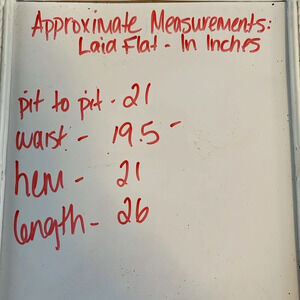 Approximate Measurements:
Laid Flat - In Inches
pit to pit - 21
waist - 19.5 -
hem - 21
length - 26